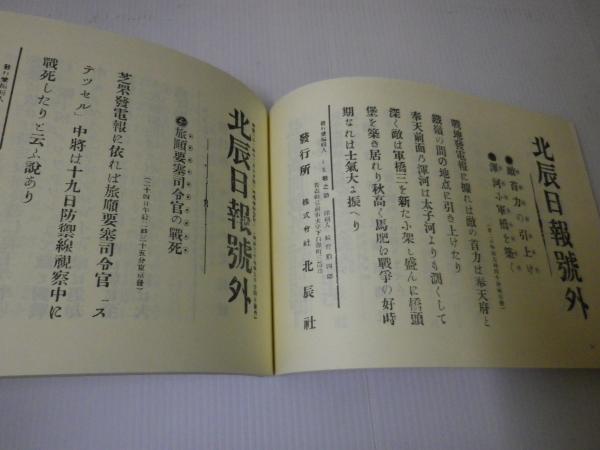 北辰日報號外
●敵首力の引上げ
●渾河に軍橋を築く
戰地發電報に據れは敵の首力は奉天府と
鐵嶺の間の地点に引き上けたり
奉天前面の渾河は太子河よりも濶くして
深く敵は軍橋三を新たに架し盛んに橋頭
堡を築き居れり秋高く馬肥は戰爭の好時
期なれは士氣大に振へり
發行所 株式會社 北辰社
北辰日報號外
旅順要塞司令官の戰死
芝罘發電報に依れば旅順要塞司令官「ス
テツセル」中將は十九日防禦線視察中に
戰死したりと云ふ説あり